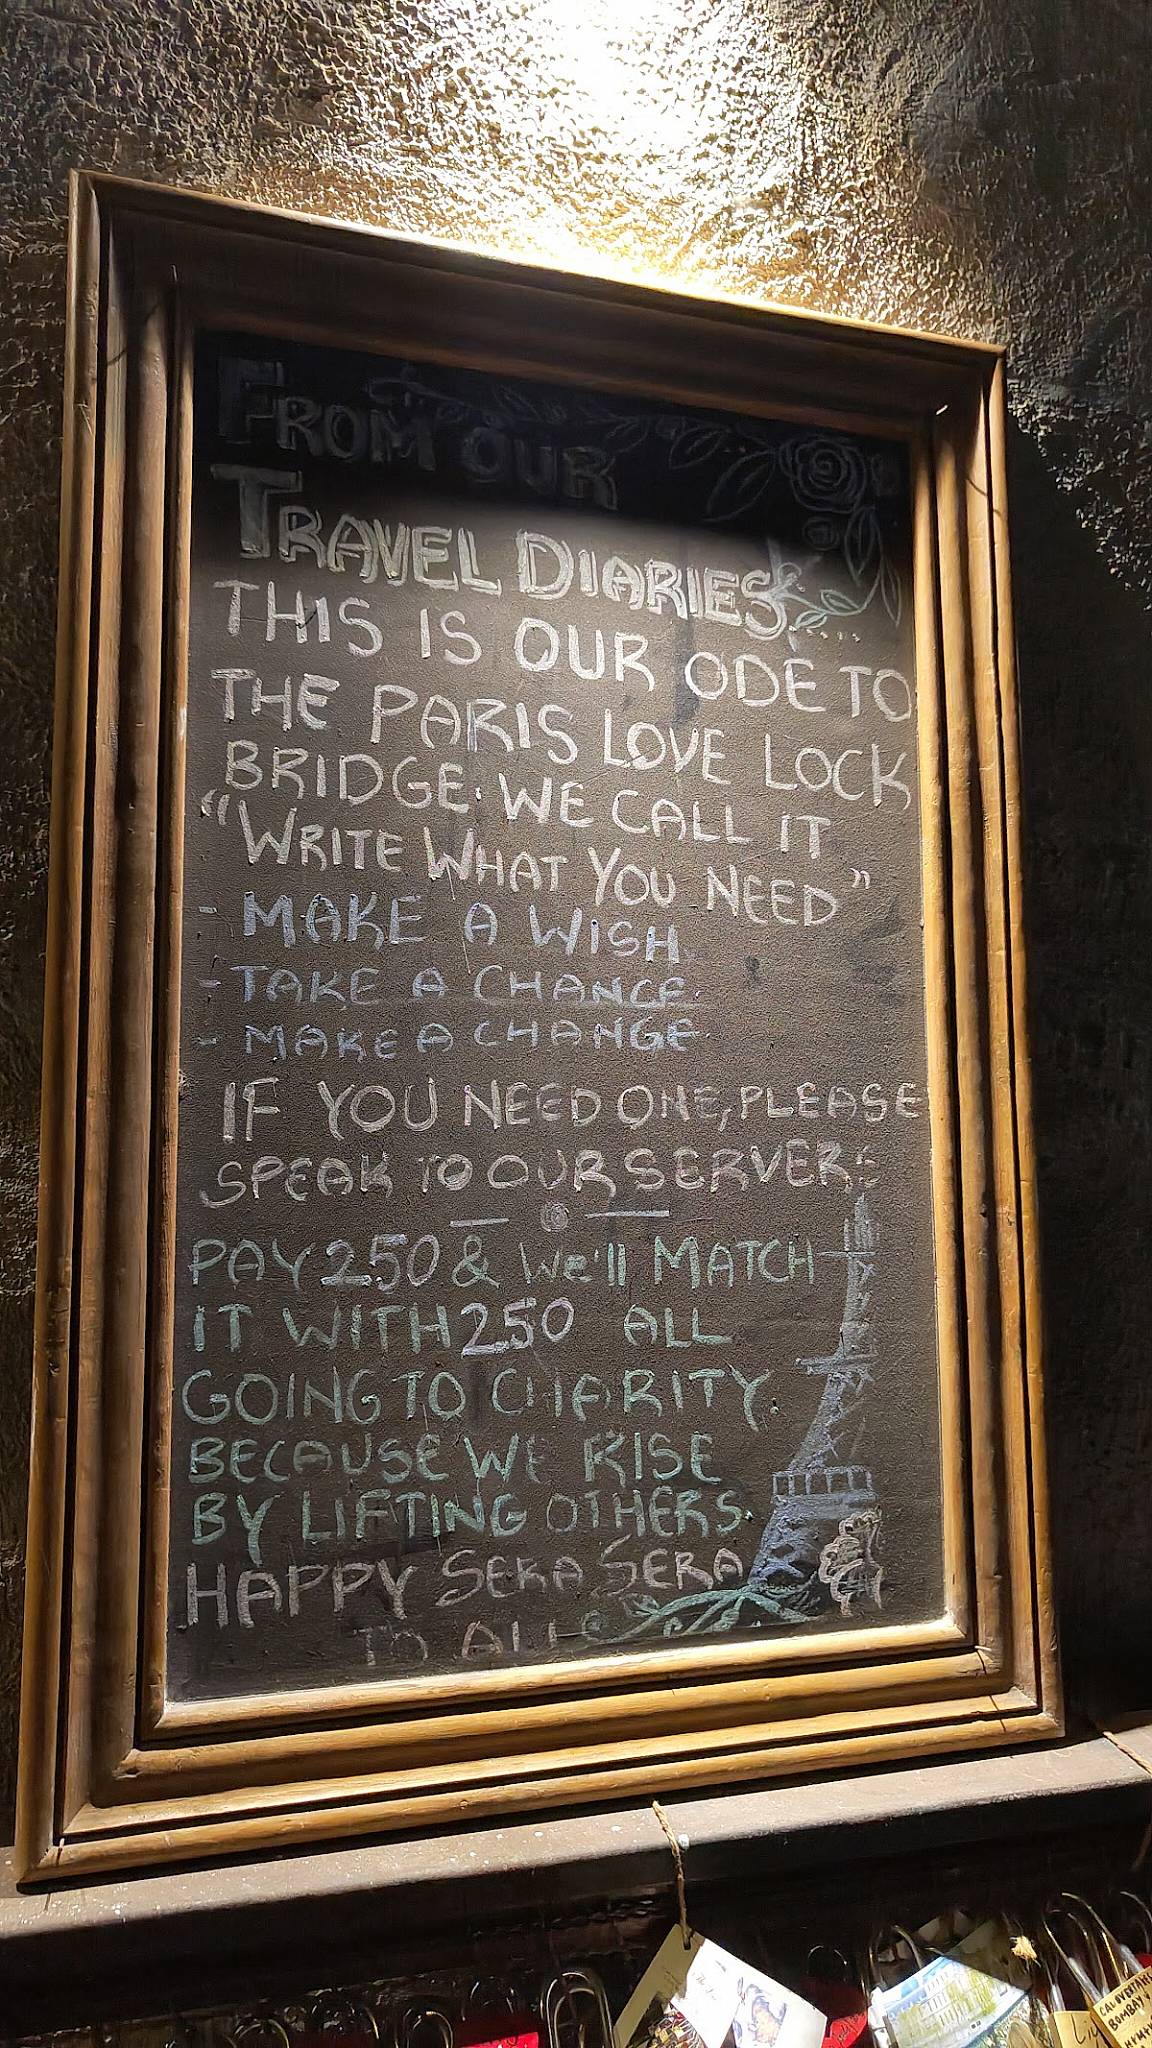 FROM OUR
TRAVEL DIARIES.....
THIS IS OUR ODE TO
THE PARIS LOVE LOCK
BRIDGE. WE CALL IT
"WRITE WHAT YOU NEED"
- MAKE A WISH.
- TAKE A CHANCE.
- MAKE A CHANGE.
IF YOU NEED ONE, PLEASE
SPEAK TO OUR SERVERS
PAY 250 & We'll MATCH
IT WITH 250 ALL
GOING TO CHARITY.
BECAUSE WE RISE
BY LIFTING OTHERS.
HAPPY SERA SERA
TO ALL
BOMBAY